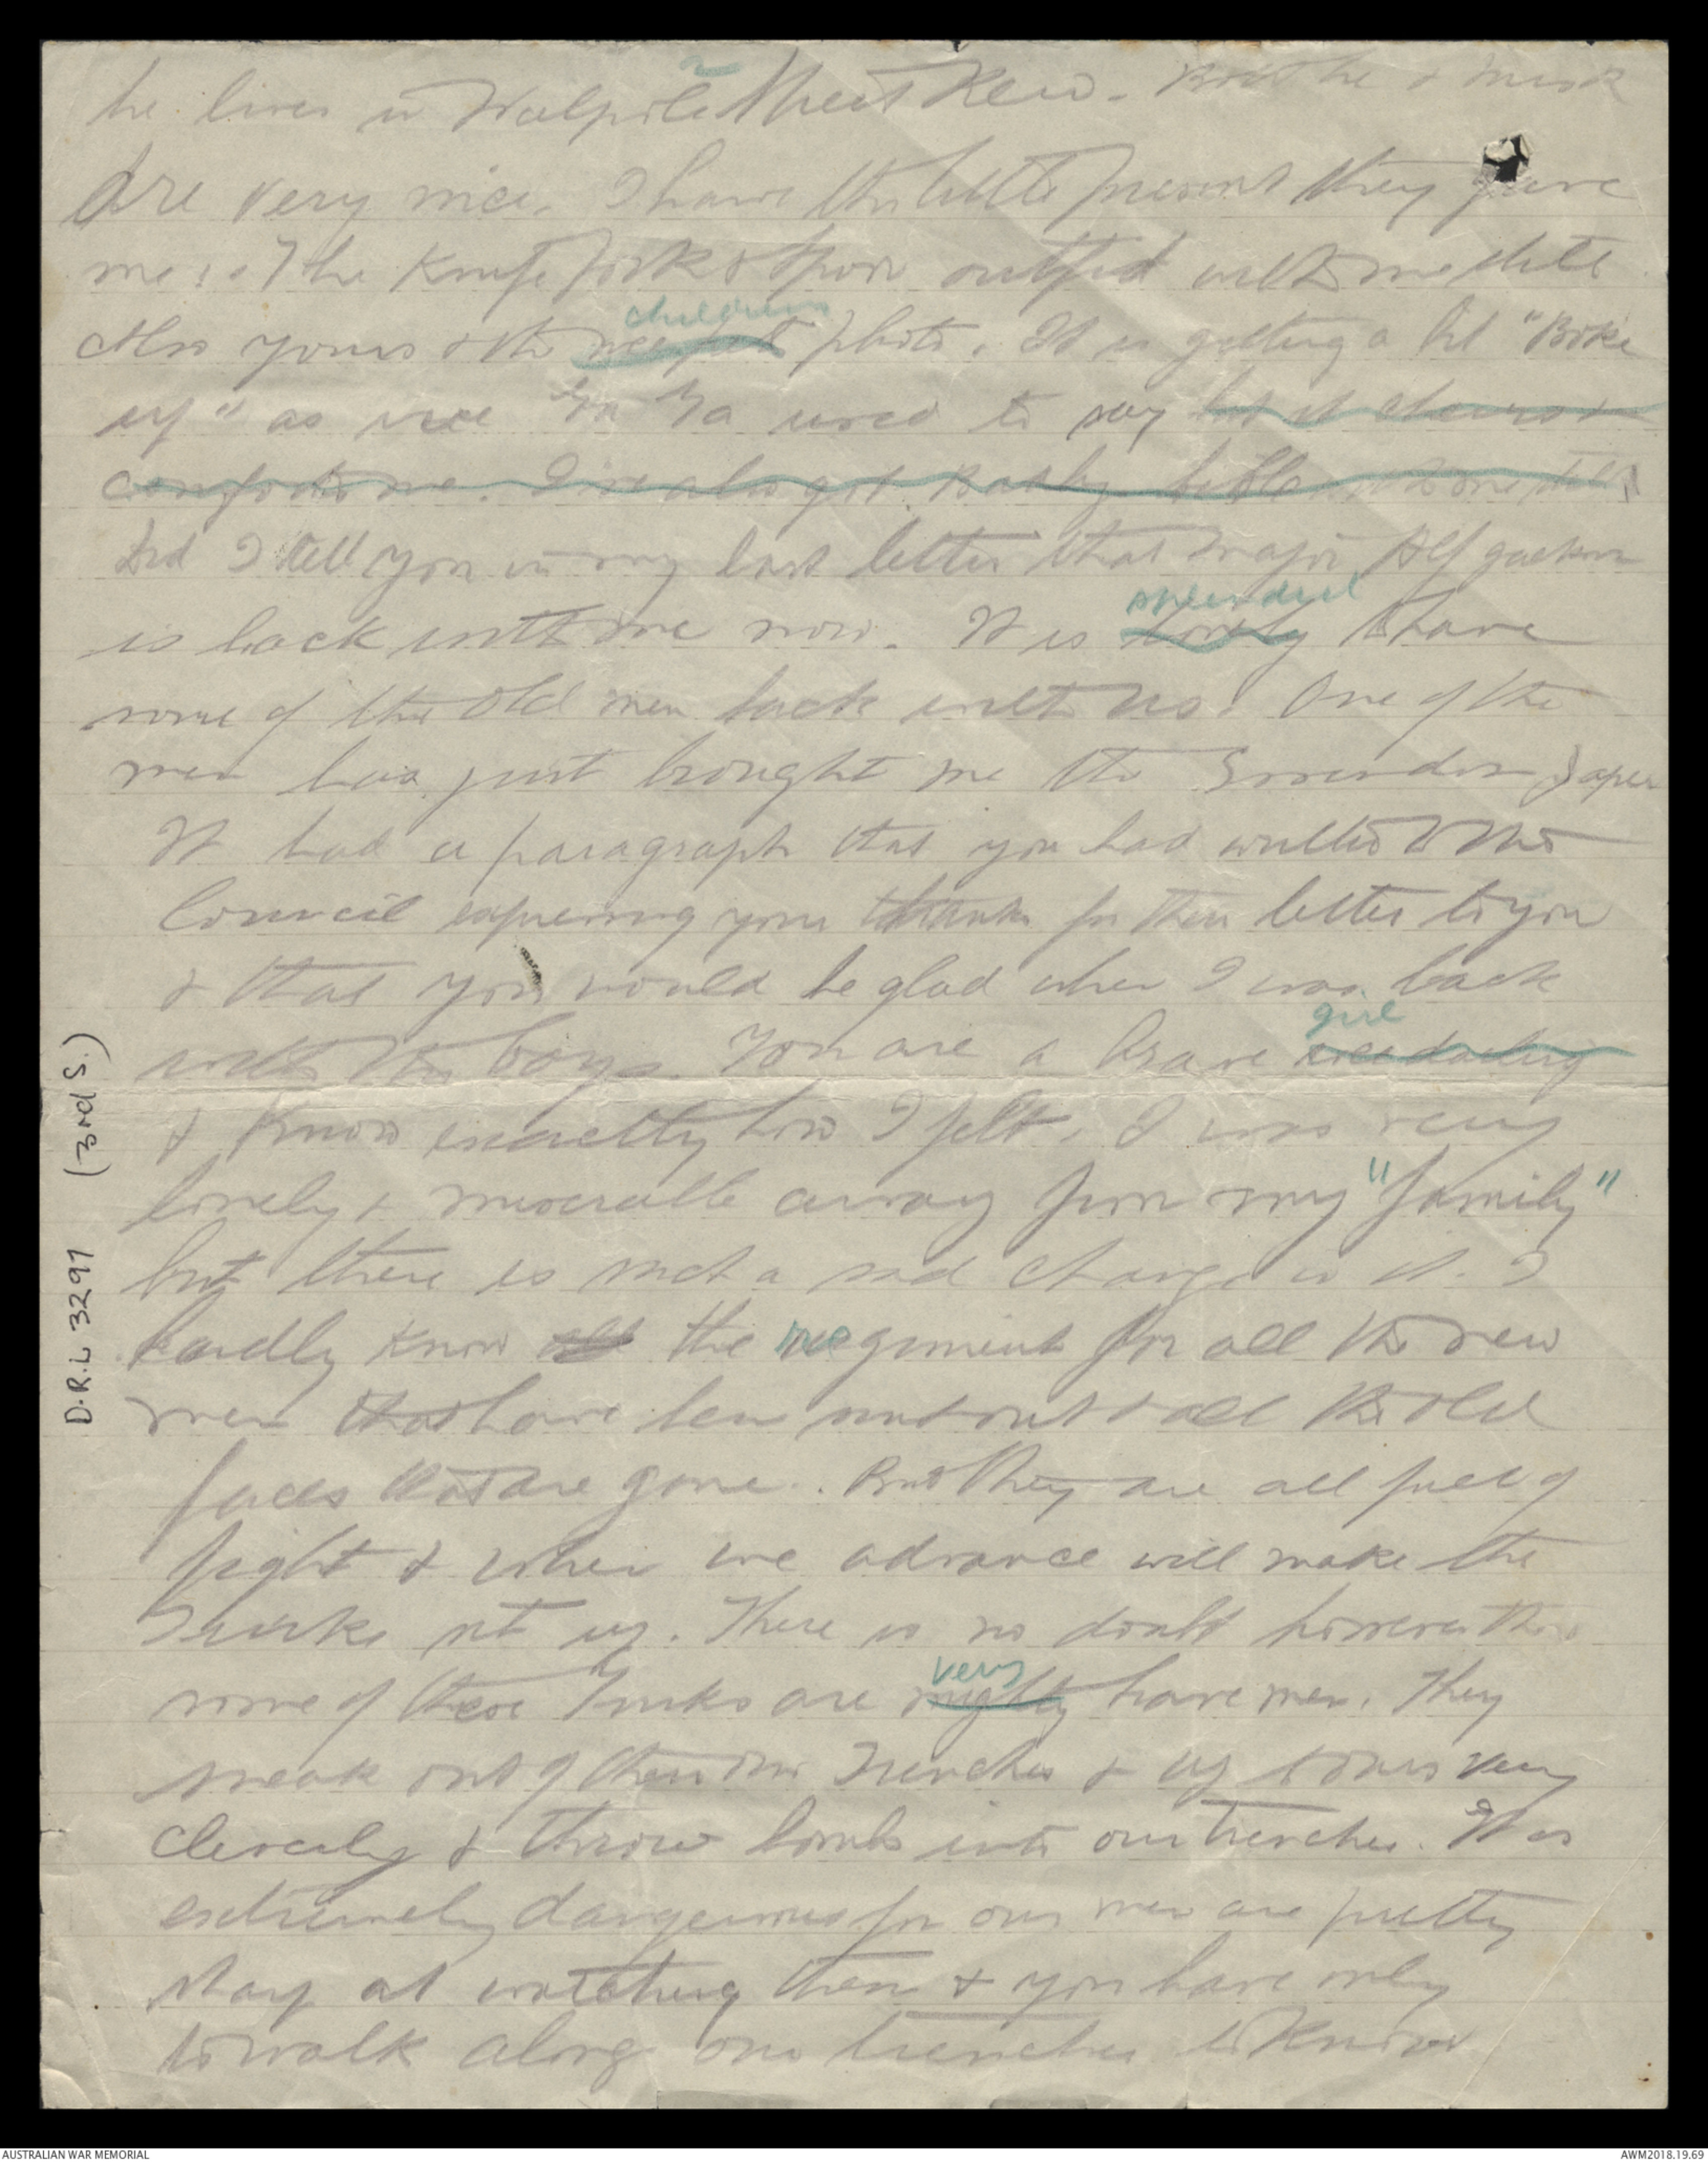 he lives in Walpole Street Kew. Both he & 
are very nice. I have the little present they gave
me i.e. The Knife fork & spoon outfit with me still
children
Also yours & the photo. It is getting a bit "Broke
up" as wee used to say but it cheers &
comforts me. I've also got with me still
Did I tell you in my last letter that Major Alf Jackson
splendid
is back with me now. It is lovely to have
some of the old men back with us. One of the
men has just brought me the Essendon paper
It had a paragraph that you had written to the
Council expressing your thanks for their letter to you
& that you would be glad when I was back
girl
with the boys. You are a brave wee darling
& know exactly how I felt. I was very
lonely & miserable away from my "family"
but there is such a sad change in it. I
hardly know the regiment for all the new
men that have been sent out & all the old
faces that are gone. But they are all full of
fight & when we advance will make the
Turks sit up. There is no doubt however tho
very
some of these Turks are mighty brave men. They
sneak out of their own Trenches & up to ours very
cleverly & throw bombs into our trenches. It is
extremely dangerous for our men are pretty
sharp at watching them & you have only
to walk along our trenches to know
D.R.L 3291 (3rd S.)
AUSTRALIAN WAR MEMORIAL
AWM2018.19.69